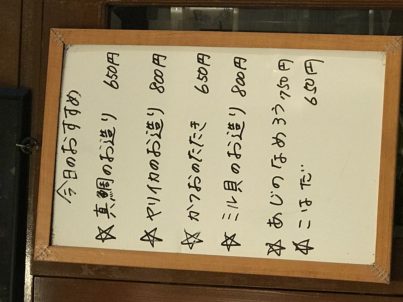 今日のおすすめ
☆真鯛のお造り 650円
☆ヤリイカのお造り 800円
☆かつおのたたき 650円
☆ミル貝のお造り 800円
☆あじのなめろう 750円
☆こはだ 650円